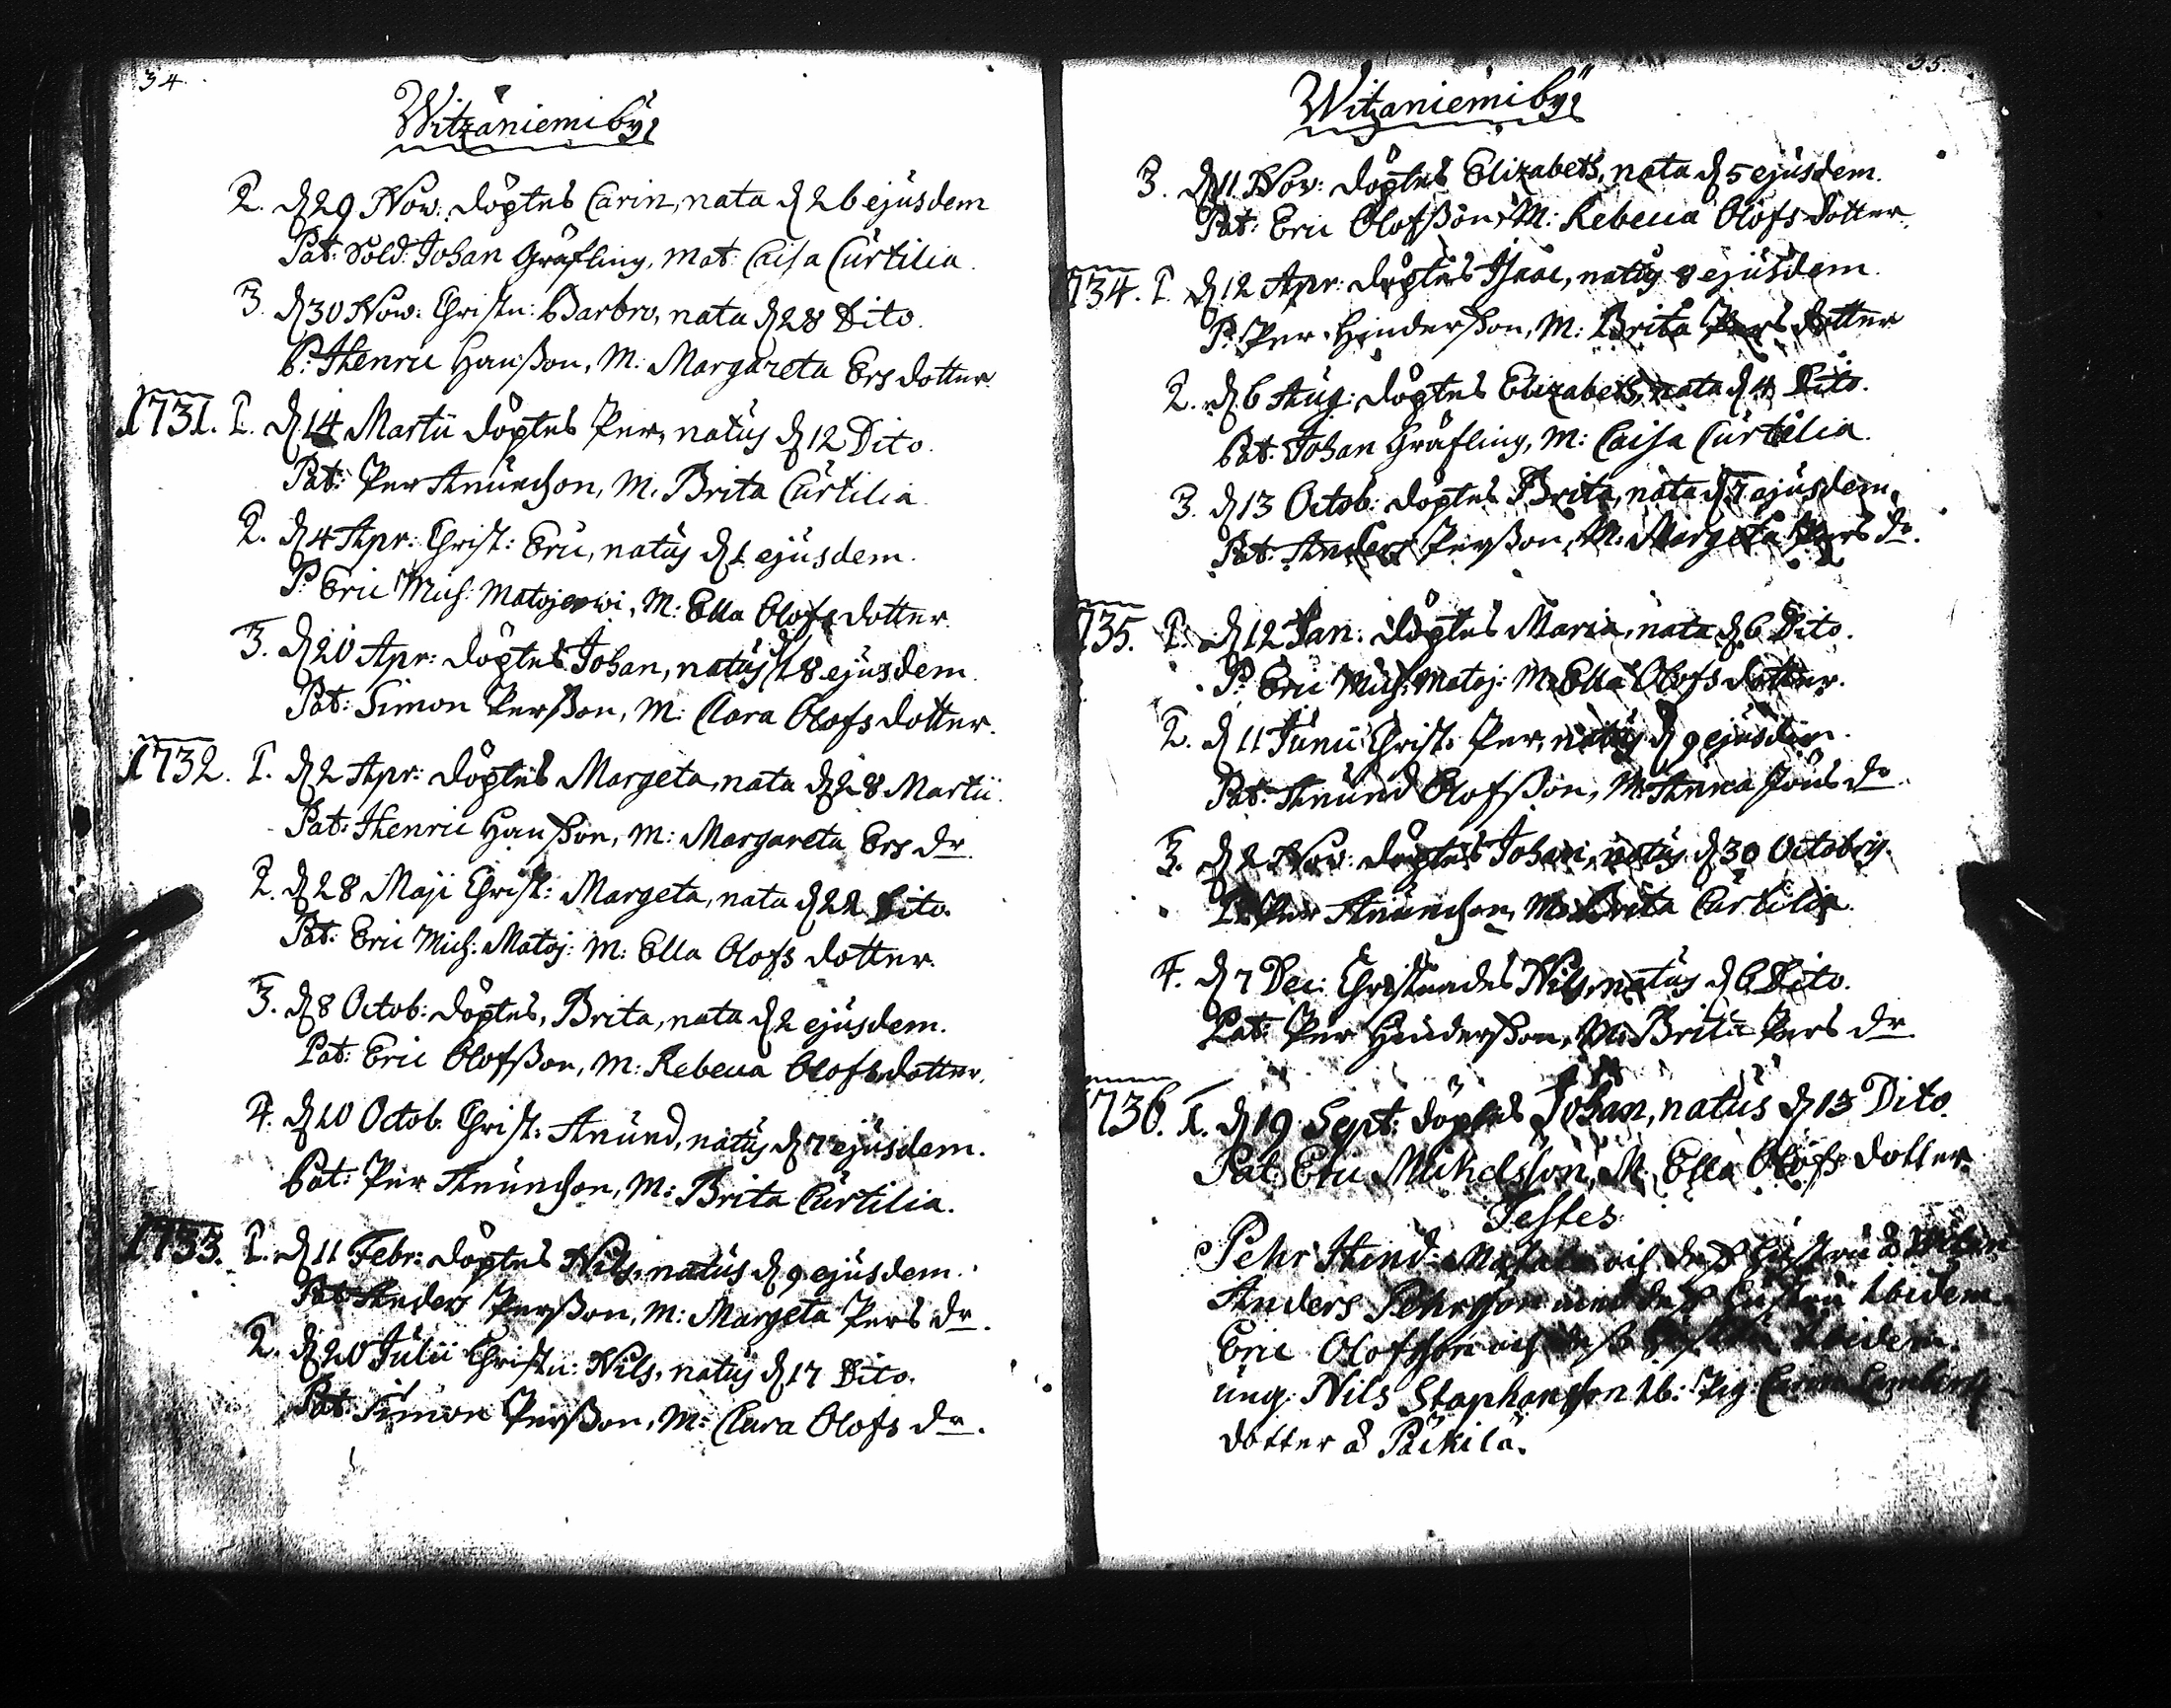 34
Witzaniemi by
2. d. 29 Nov: döptes Carin, nata d. 26 ejusdem
Pat: Sold: Johan Gräfling, Mat: Caisa Curtilia.
3. d. 30 Nov: Christn: Barbro, nata d. 28 Dito.
P: Henric Hansson, M: Margareta Ers dotter.
1731. 1. d. 14 Martii döptes Per, natus d. 12 Dito.
Pat: Per Anundson, M: Brita Curtilia.
2. d. 4 Apr: Christ: Eric, natus d. 1 ejusdem.
P: Eric Mich: Matojerwi, M: Ella Olofs dotter.
3. d. 20 Apr: döptes Johan, natus 18 ejusdem.
Pat: Simon Persson, M: Clara Olofs dotter.
1732. 1. d. 2 Apr: döptes Margeta, nata d. 28 Martii.
Pat: Henric Hansson, M: Margareta Ers dr.
2. d. 28 Maji Christ: Margeta, nata d. 22 Dito.
Pat: Eric Mich: Matoj: M: Ella Olofs dotter.
3. d. 8 Octob: döptes, Brita, nata d. 2 ejusdem.
Pat: Eric Olofsson, M: Rebecca Olofs dotter.
4. d. 10 Octob. Christ: Anund, natus d. 7 ejusdem.
Pat: Per Anundson, M: Brita Curtilia.
1733. 1. d. 11 Febr: döptes Nils, natus d. 9 ejusdem.
Pat: Anders Persson, M: Margeta Pers dr.
2. d. 20 Julii Christn: Nils, natus d. 17 Dito.
Pat: Simon Persson, M: Clara Olofs dr.
35.
Witzaniemi by
3. d. 11 Nov: döptes Elizabeth, nata d. 5 ejusdem.
Pat: Eric Olofsson, M: Rebecca Olofs dotter.
1734. 1. d. 12 Apr: döptes Isaac, natus 8 ejusdem.
P: Per Hindersson, M: Brita Pers dotter
2. d. 6 Aug: döptes Elizabeth, nata d. 4 Dito.
Pat: Johan Gräfling, M: Caisa Curtilia.
3. d. 13 Octob: döptes Brita, nata d. 7 ejusdem.
Pat: Anders Persson, M: Margeta Pers dr.
1735. 1. d. 12 Jan: döptes Maria, nata d. 6 Dito.
P: Eric Mich: Matoj: M: Ella Olofs dotter.
2. d. 11 Junii Christ: Per, natus d. 9 ejusdem.
Pat: Anund Olofsson, M: Anna Jöns dr.
3. d. 2 Nov: döptes Johan, natus d. 30 Octobris.
P: Per Anundson, M: Brita Curtilia.
4. d. 7 Dec: Christnades Nils, natus d. 6 Dito.
Pat: Per Hindersson, M: Brita Pers dr.
1736. 1. d. 19 Sept: döptes Johan, natus d. 13 Dito.
Pat: Eric Michelsson, M: Ella Olofs dotter.
Testes
Pehr Hend: och dess hustru å
Anders Pehrsson med dess hustru ibidem.
Eric Olofsson och dess hustru ibidem.
ung: Nils Staphansson ib: Pig: Carin
dotter å Päikilä.